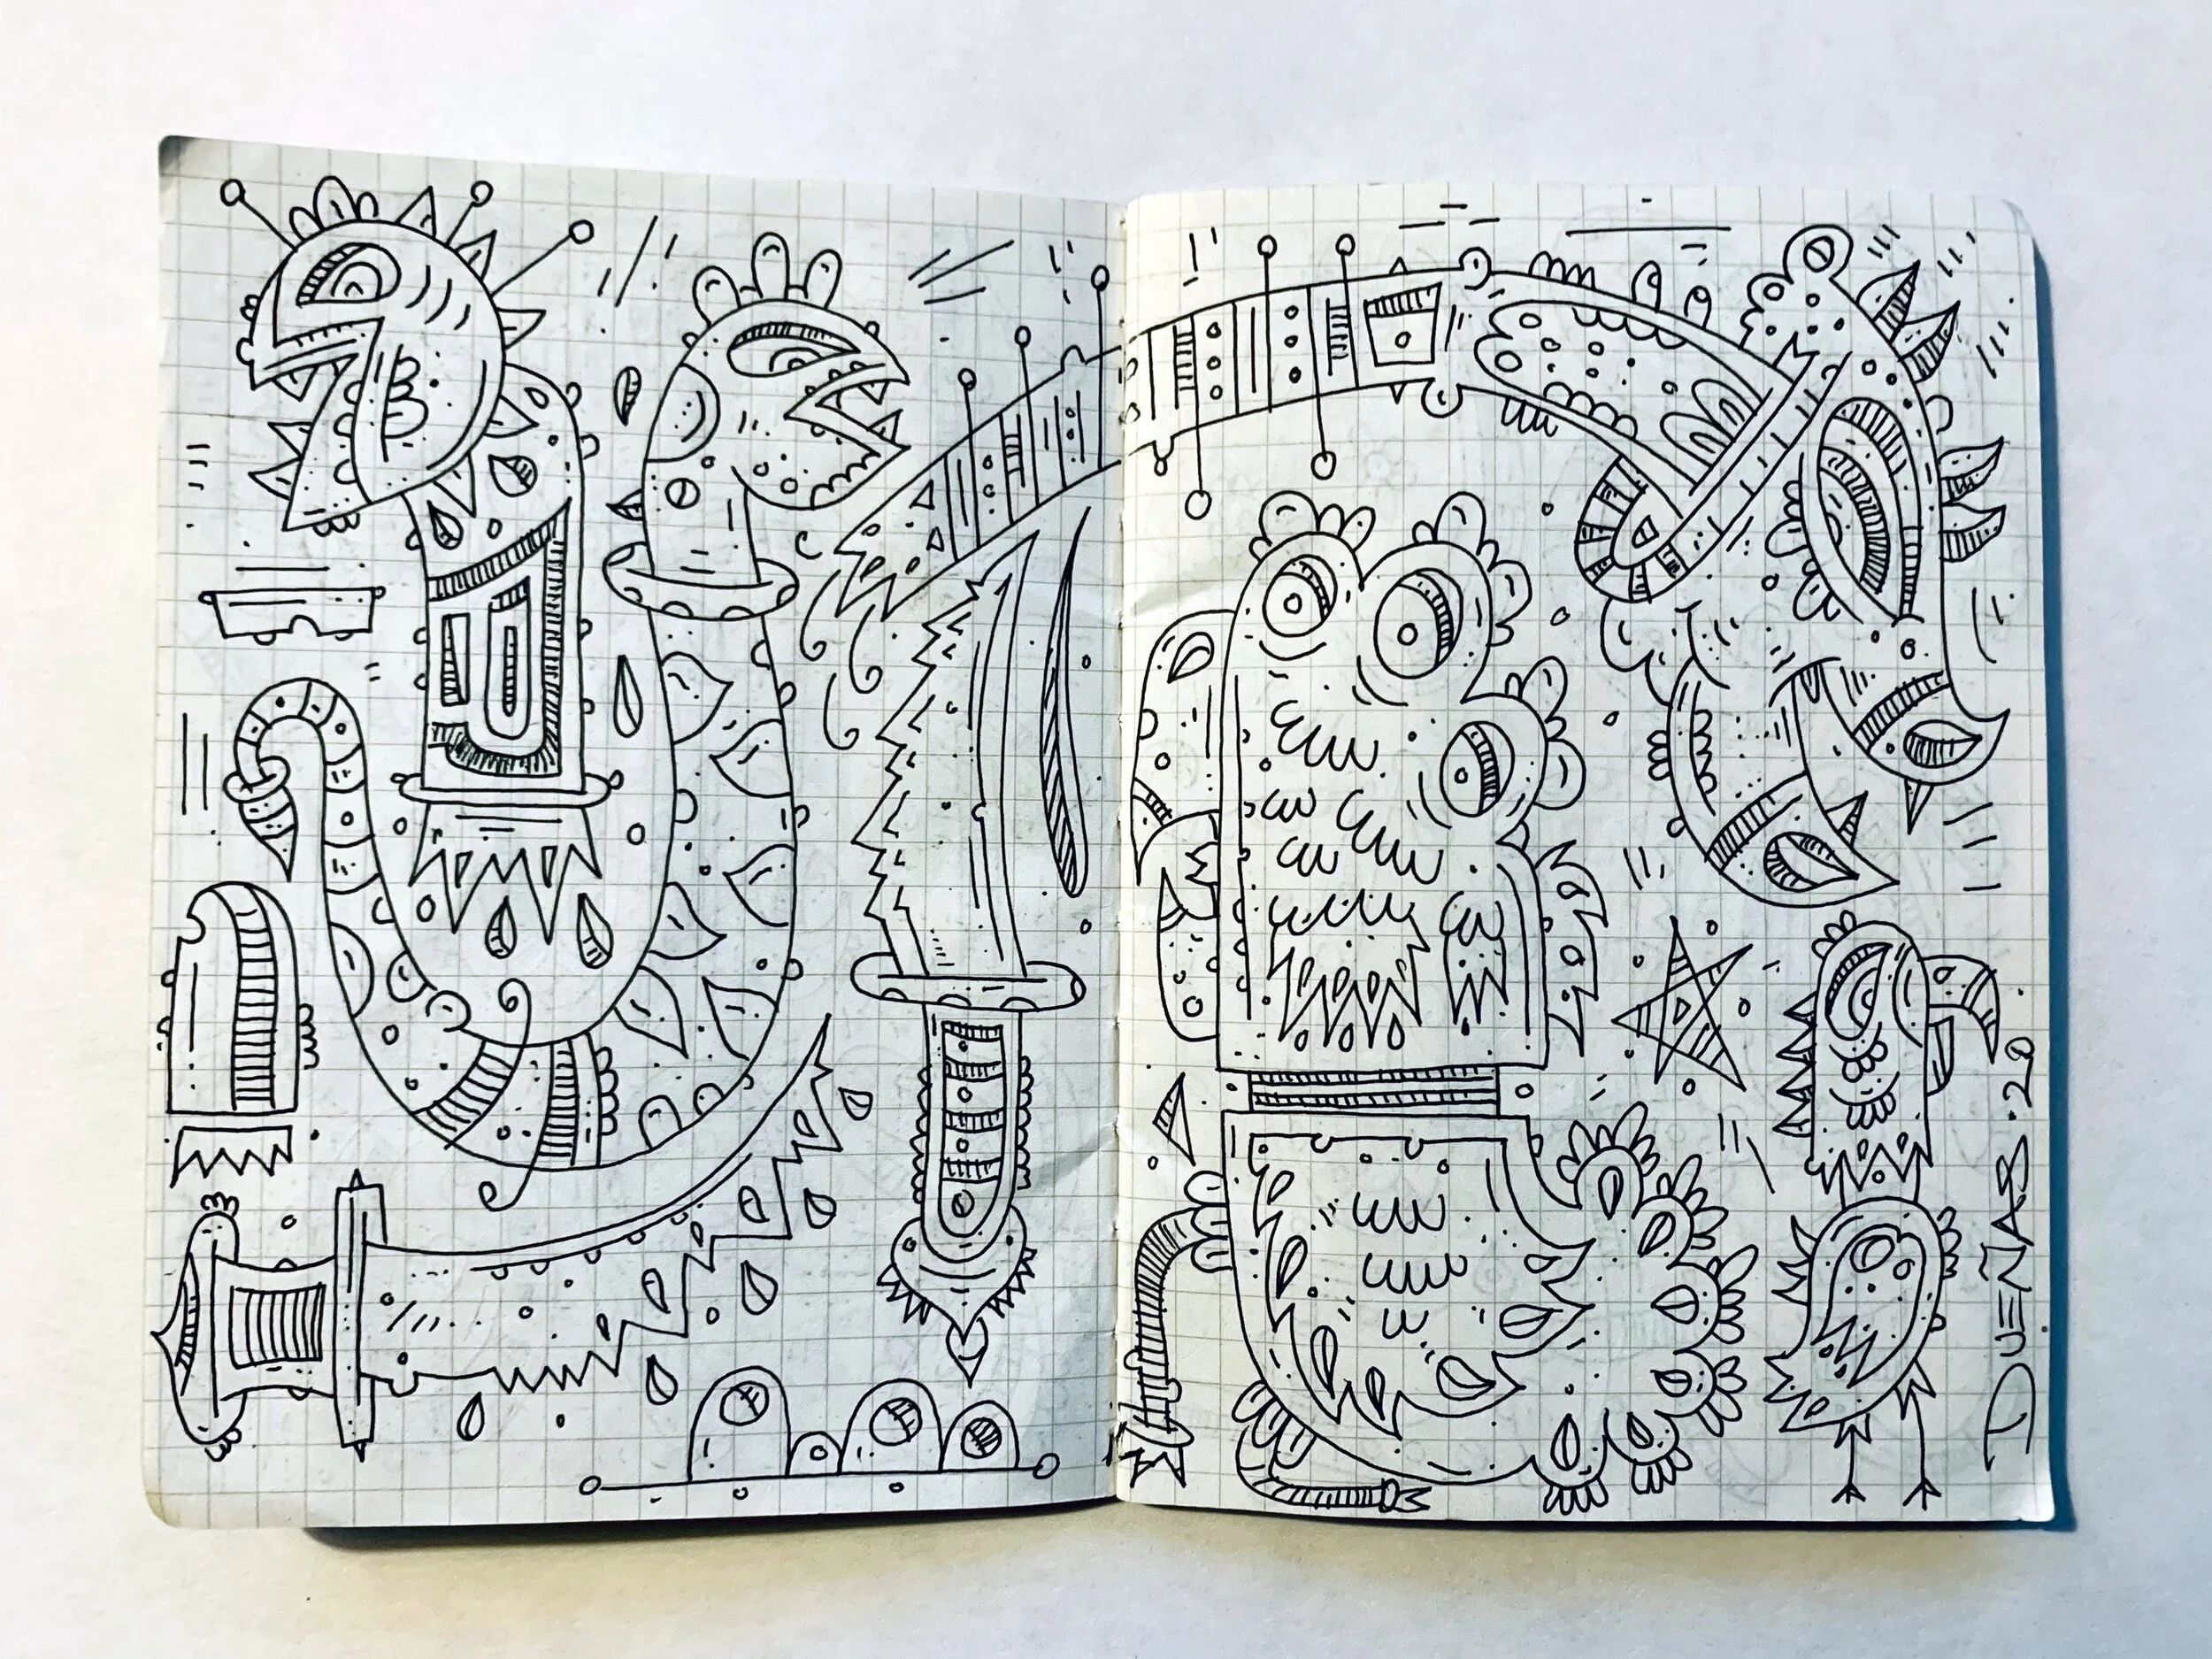 DUEÑAS·20